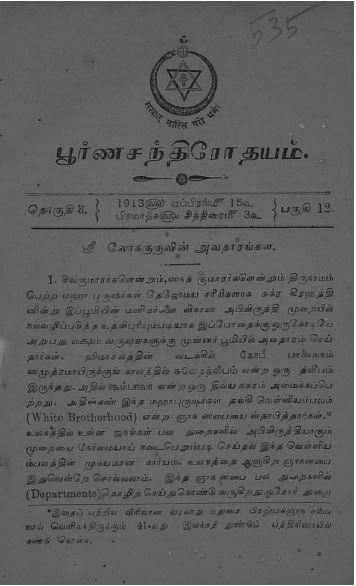 535
சத்யாத் நாஸ்தி பரோ தர்ம:
பூர்ணசந்திரோதயம்.
தொகுதி 3. } 1913௵ ஏப்ரல்௴ 15௳ { பகுதி 12.
பிரமாதீச௵ சித்திரை௴ 3௳
ஸ்ரீ லோககுருவின் அவதாரங்கள்.
1. சிவகுமாரர்களென்றும், ஸநத் குமாரர்களென்றும் திருநாமம்
பெற்ற மஹா புருஷர்கள் தேஜோமய சரீரிகளாக சுக்ர கிரஹத்தி
னின்று இப்பூமியின் மனிதர்களை விகாஸ அபிவிருத்தி முறையில்
நல்வழிப்படுத்த உதவிபுரியும்படியாக இப்போதைக்கு ஒருகோடியே
அறுபது லக்ஷம் வருஷங்களுக்கு முன்னர் பூமியில் அவதாரம் செய்
தார்கள். ஹிமாசலத்தின் வடக்கில் கோபி பாலைவனம்
ஸமுத்ரமாயிருக்குங் காலத்தில் சுவேதத்வீபம் என்ற ஒரு த்வீபம்
இருந்தது. அதில் ஷம்பாலா என்ற ஒரு திவ்ய நகரம் அமைக்கப்பெ
ற்றது. அதின்கண் இந்த மஹாபுருஷர்கள் தங்கி வெளியம்பலம்
(White Brotherhood) என்ற ஞான ஸபையை ஸ்தாபித்தார்கள்.*
உலகத்தில் உள்ள ஜனங்கள் பல துறைகளில் அபிவிருத்தியாகும்
முறையை நேர்மையாய் நடைபெறும்படி செய்தல் இந்த வெள்ளிய
ம்பலத்தின் முக்யமான காரியம். உலகத்தை ஆளுகிற ஞானஸபை
இதுவென்றே சொல்லலாம். இந்த ஞான ஸபை பல துறைகளில்
(Departments) தொழிற் செய்துகொண்டு வருகிறது. ஒரோர் துறை
*இதைப் பற்றிய விரிவான வரலாறு மதுரை பிரஹ்மஞான ஸபை
யால் வெளிவந்திருக்கும் 41-வது இலக்கத் துண்டுப் பத்திரிகையில்
கண்டு கொள்க.